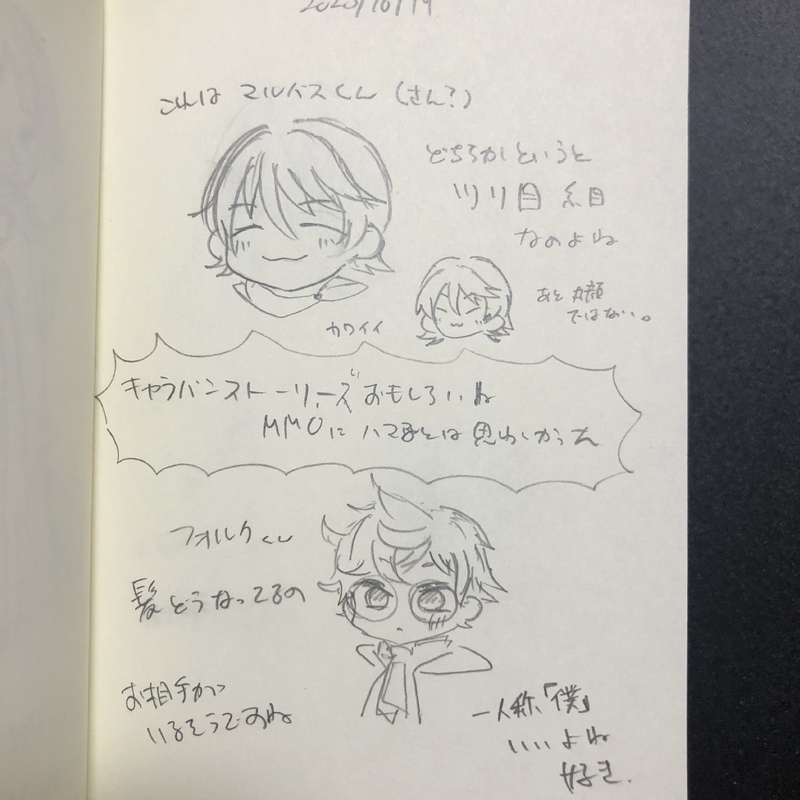 2023/10/19
これは マルバスくん (さん?)
どちらかというと
ツリ目 糸目
なのよね
あと 丸顔
ではない。
カワイイ
キャラバンストーリーズ おもしろいね
MMOに ハマるとは 思わんかった
フォルクくん
髪どうなってるの
お相手が
いるそうですね
一人称「僕」
いいよね
好き.